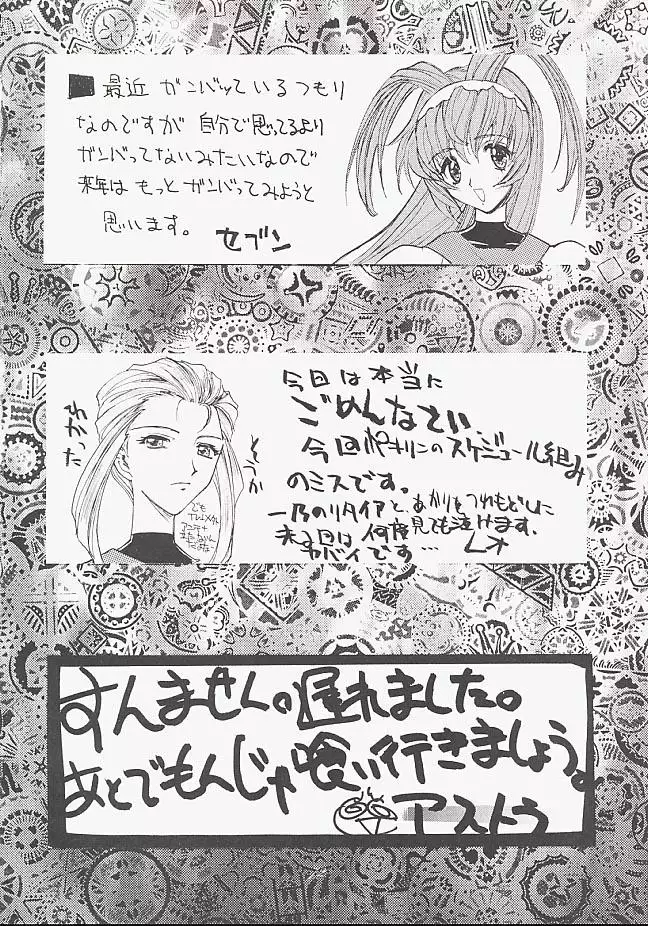 ■最近 ガンバッているつもり
なのですが 自分で思ってるより
ガンバってないみたいなので
来年は もっとガンバってみようと
思います。 セブン
今回は本当に
ごめんなさい
今回 のスケジュール組み
のミスです。
一乃のリタイアと、あかりをつれもどしに
来る回は 何度見ても泣けます。
ヤバイです…
すんません。遅れました。
あとでもんじゃ喰い行きましょう。
アストラ